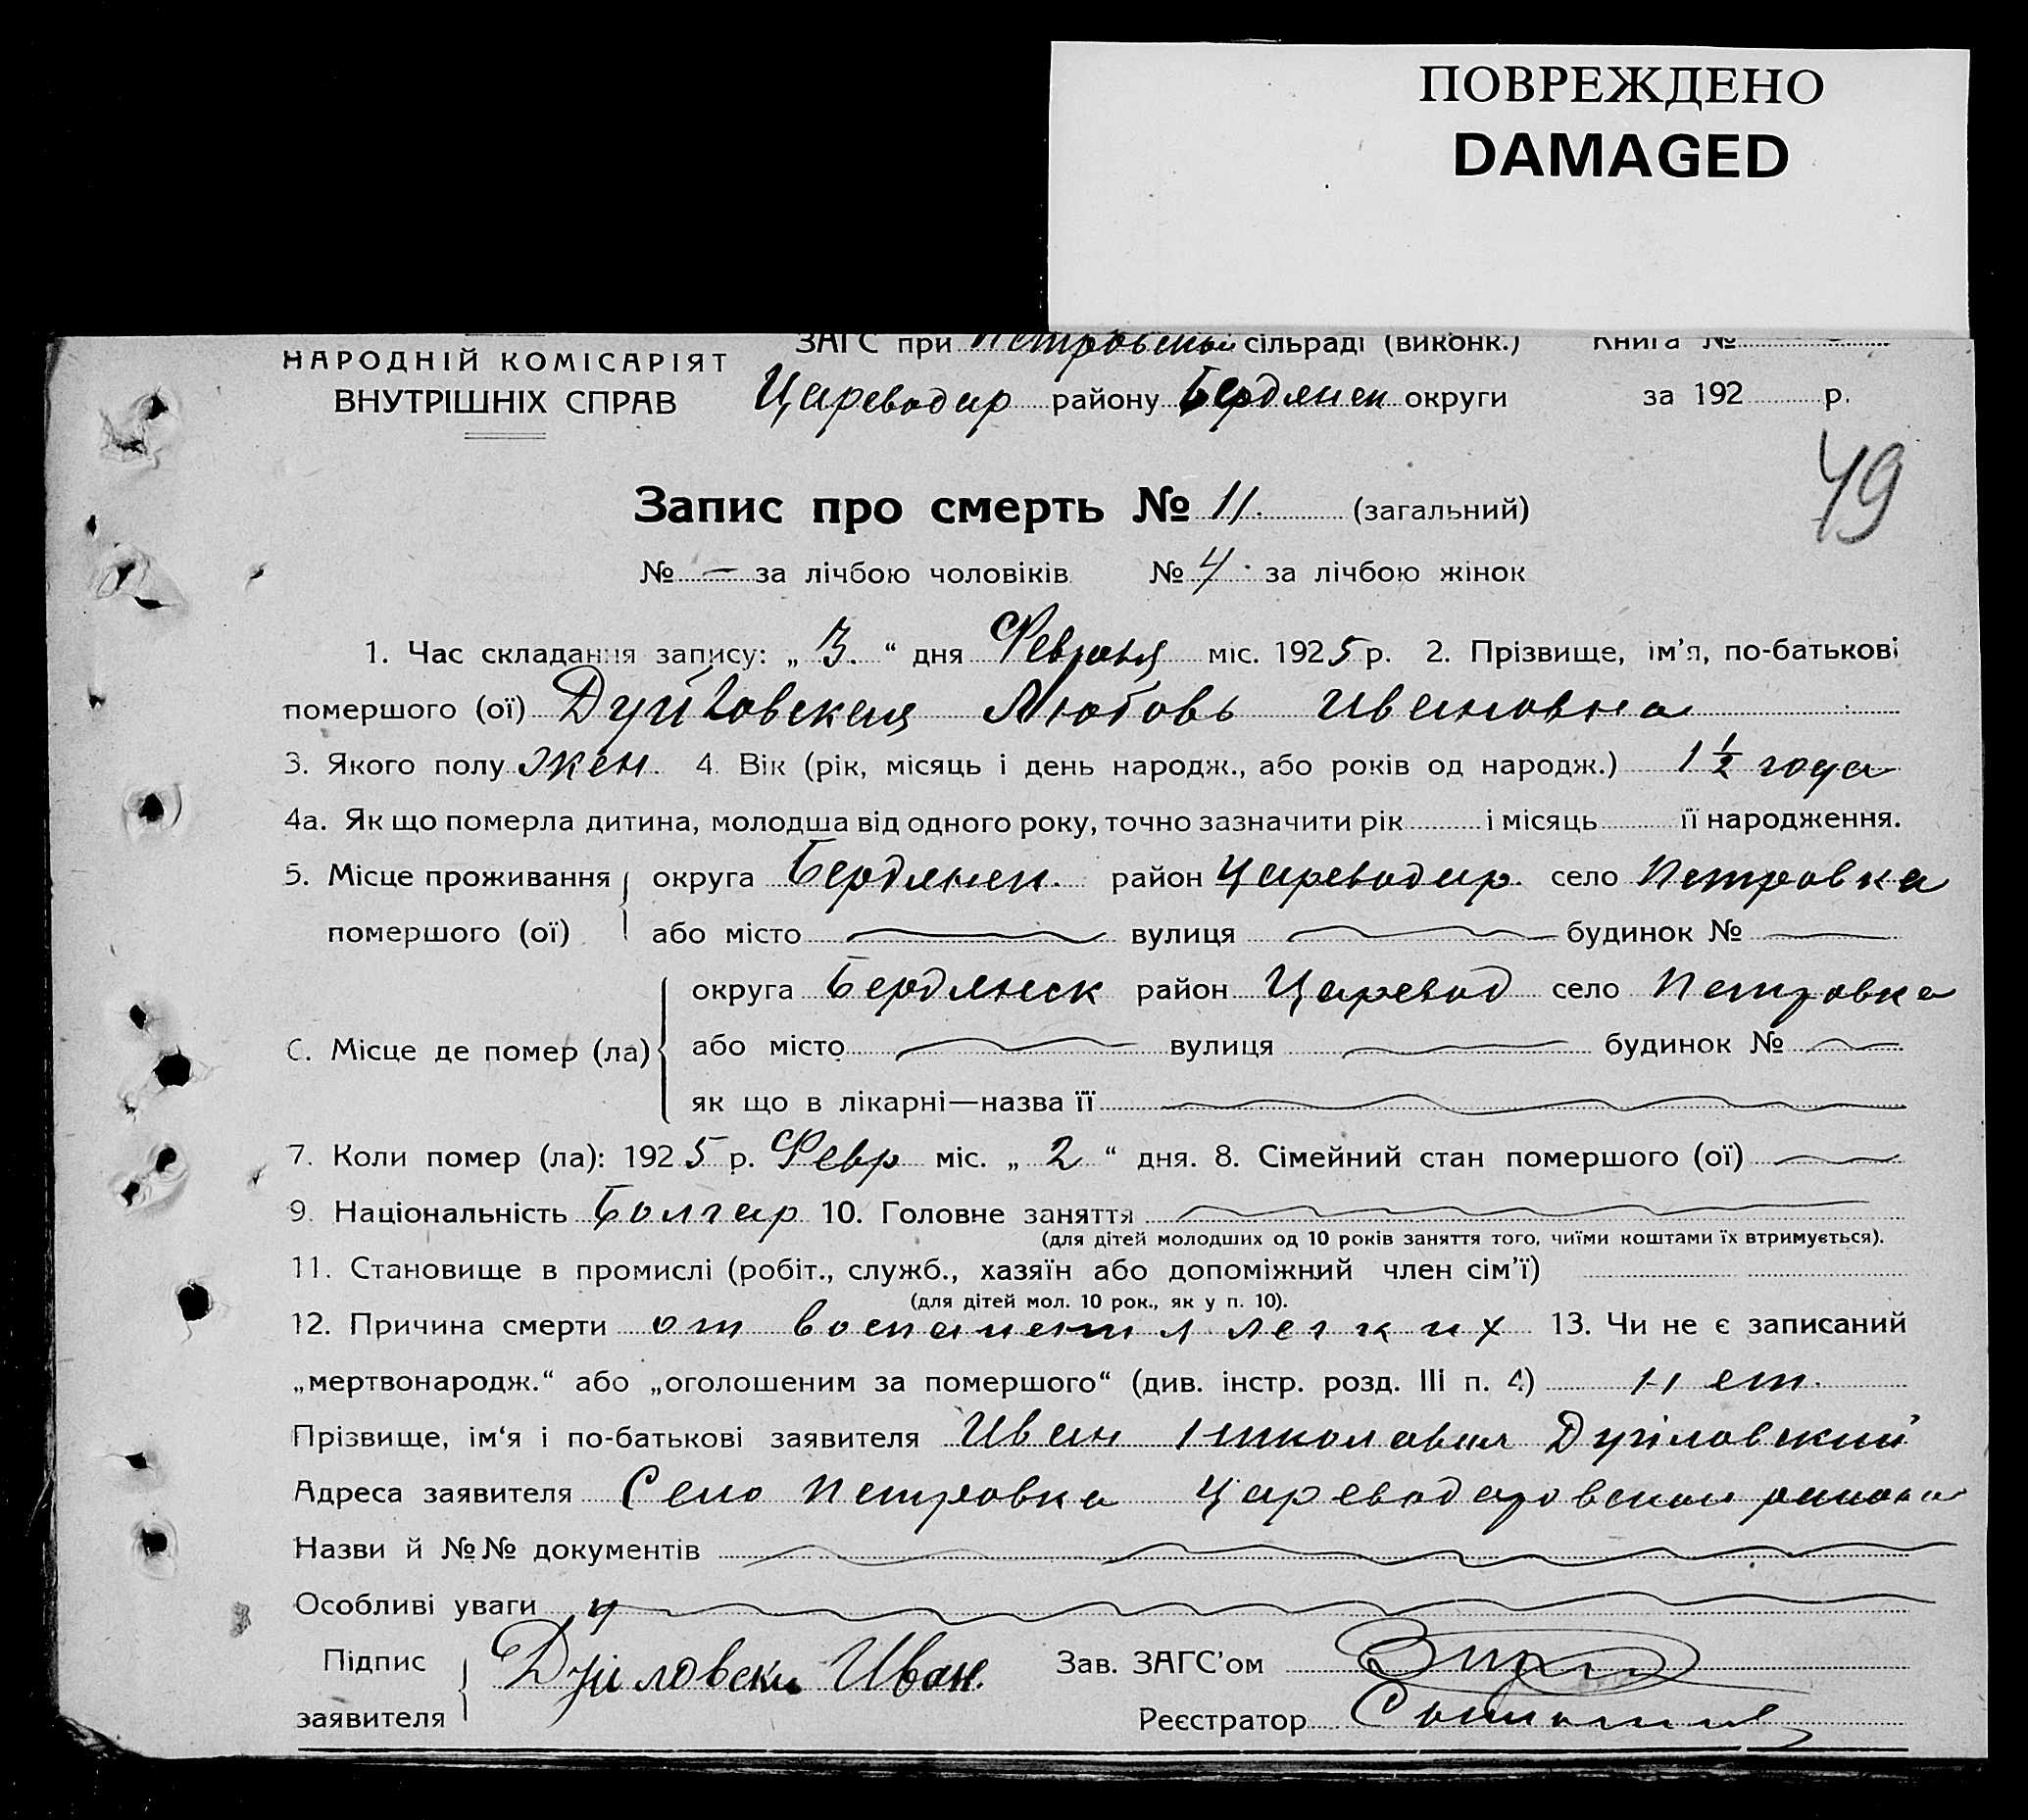 ПОВРЕЖДЕНО
DAMAGED
НАРОДНІЙ КОМІСАРІЯТ
ВНУТРІШНІХ СПРАВ
ЗАГС при Петровской сільраді (виконк.) Книга №
Цареводар району Бердянск округи за 192 р.
49
Запис про смерть № 11. (загальний)
№ — за лічбою чоловіків № 4. за лічбою жінок
1. Час складання запису: „ 3. “ дня Февраля міс. 1925 р. 2. Прізвище, ім'я, по-батькові
помершого (ої) Любовь Ивановна
3. Якого полу жен. 4. Вік (рік, місяць і день народж., або років од народж.) 1 1/2 года
4а. Як що померла дитина, молодша від одного року, точно зазначити рік і місяць її народження.
5. Місце проживання округа Бердянск. район Цареводар. село Петровка
помершого (ої) або місто вулиця будинок №
округа Бердянск район Царевод село Петровка
6. Місце де помер (ла) або місто вулиця будинок №
як що в лікарні—назва її
7. Коли помер (ла): 1925 р. Февр міс. „ 2 “ дня. 8. Сімейний стан помершого (ої)
9. Національність Болгар 10. Головне заняття
(для дітей молодших од 10 років заняття того, чиїми коштами їх втримується).
11. Становище в промислі (робіт., служб., хазяїн або допоміжний член сім'ї)
(для дітей мол. 10 рок., як у п. 10).
12. Причина смерти от воспаления легких 13. Чи не є записаний
„мертвонародж.“ або „оголошеним за помершого“ (див. інстр. розд. III п. 4) нет.
Прізвище, ім'я і по-батькові заявителя Иван Дуйловский
Адреса заявителя Село Петровка Цареводаровского района
Назви й №№ документів
Особливі уваги
Підпис
заявителя Иван.
Зав. ЗАГС'ом
Реєстратор